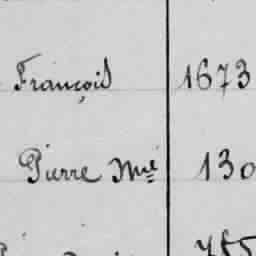 François 1673
Pierre M^ie 130
755